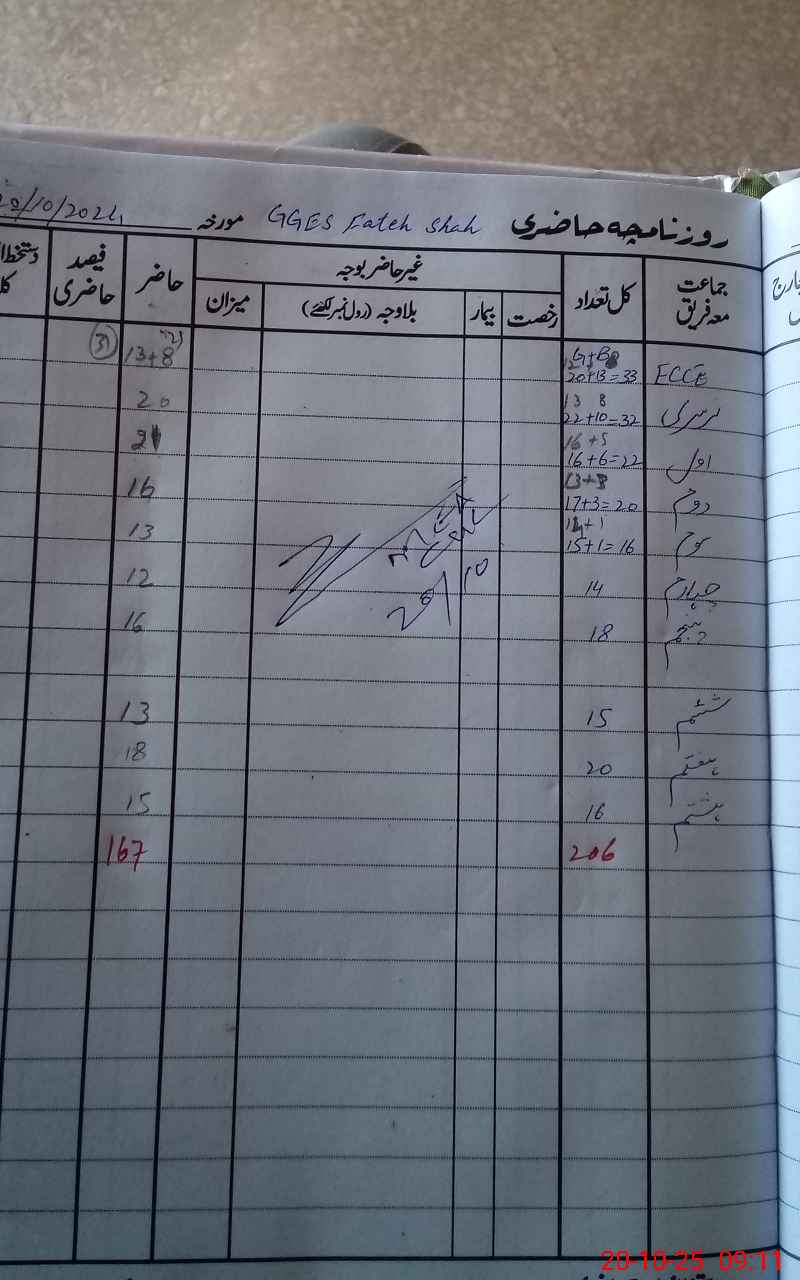 روزنامچہ حاضری GGES Fateh Shah مورخہ 20/10/2024
جماعت معہ فریق کل تعداد غیر حاضر بوجہ حاضر فیصد حاضری
رخصت بیمار بلاوجہ (رول نمبر لکھئے) میزان
G+B
ECCE 20+13=33 13+8 31
13 8
نرسری 22+10=32 20
16+5
اول 16+6=22 21
دوم 17+3=20 16
14+1
سوم 15+1=16 13
چہارم 14 12
پنجم 18 16
20/10
ششم 15 13
ہفتم 20 18
ہشتم 16 15
206 167
20-10-25 09:11